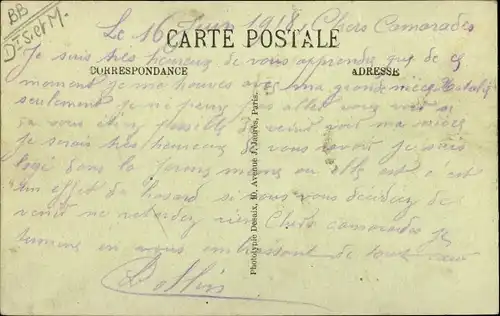 BB
D. Siet M.
Le 16 Juin 1918, Chers Camarades
CARTE POSTALE
Je suis très heureux de vous apprendre que de ce
CORRESPONDANCE ADRESSE
moment je me trouve avec ma grande nièce
seulement je ne peux pas aller vous voir si
ça vous était possible de venir voir ma nièce
je serais très heureux de vous revoir je suis
logé dans la ferme même ou elle est c est
un effet du hasard si vous vous décidiez de
venir ne retardez rien Chers camarades je
termine en vous embrassant de tout cœur
Phototypie Desaix, 10, Avenue J. Jaurès, Paris.